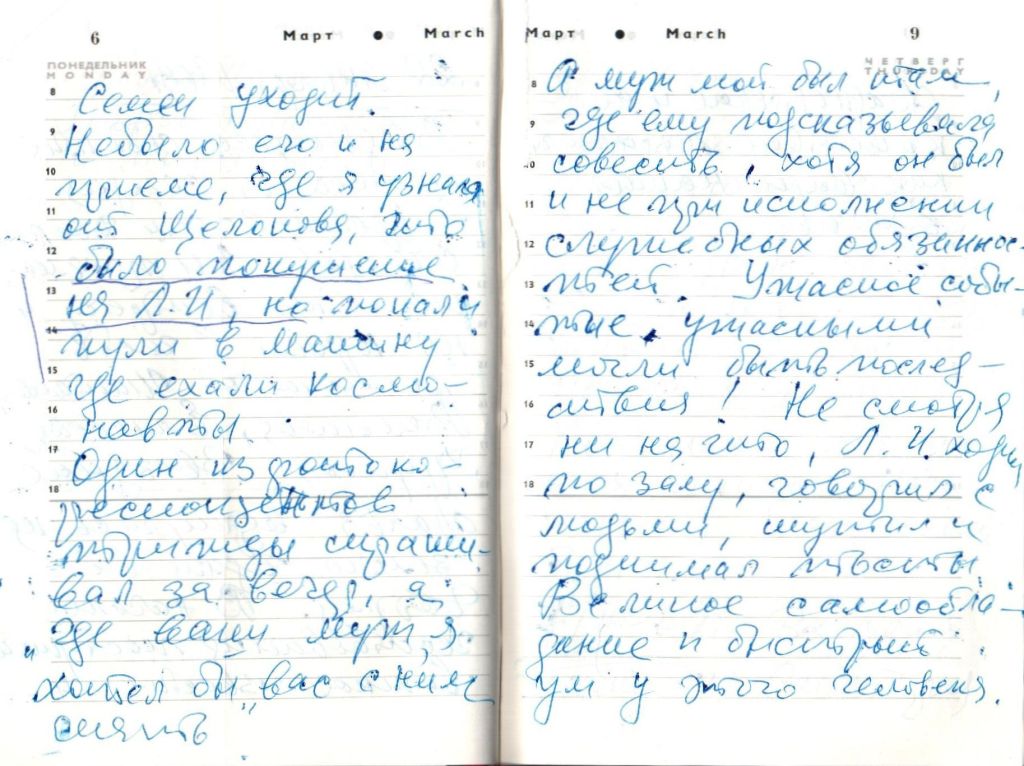 6 Март • March
ПОНЕДЕЛЬНИК
MONDAY
8 Семен уходит.
9 Небыло его и на
10 приеме, где я узнала
11 от Щелокова, что
12 было покушение
13 на Л.И, но попали
14 пули в машину
15 где ехали космо-
16 навты.
17 Один из фотоко-
18 респондентов
трижды спраши-
вал за вечер, а
"где ваш муж, я
хотел бы вас с ним
снять"
Март • March 9
ЧЕТВЕРГ
THURSDAY
8 А муж мой был там,
9 где ему подсказывала
10 совесть, хотя он был
11 и не при исполнении
12 служебных обязаннос-
13 тей. Ужасное собы-
14 тие, ужасными
15 могли быть послед-
16 ствия! Не смотря
17 ни на что, Л.И. ходил
18 по залу, говорил с
людьми, шутил и
поднимал тосты
Великое самообла-
дание и быстрый
ум у этого человека.